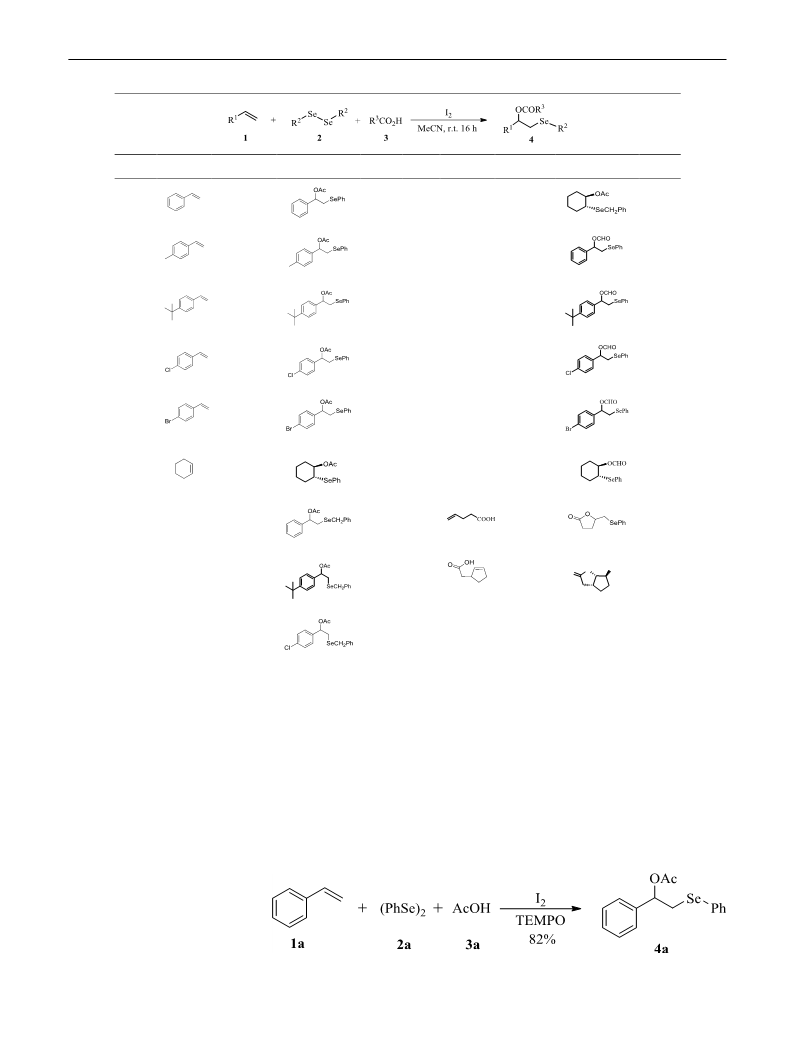 R1 + R2 Se Se R2 + R3CO2H I2 OCOR3 R1 Se R2
MeCN, r.t. 16 h
1 2 3 4
OAc SePh OAc SeCH2Ph
OAc SePh OCHO SePh
OAc SePh OCHO SePh
Cl OAc SePh Cl OCHO SePh Cl
Br OAc SePh Br OCHO SePh Br
OAc SePh OCHO SePh
OAc SeCH2Ph COOH O O SePh
OAc SeCH2Ph O OH
OAc SeCH2Ph Cl
OAc
+ (PhSe)2 + AcOH I2 Se Ph
TEMPO
1a 2a 3a 82% 4a